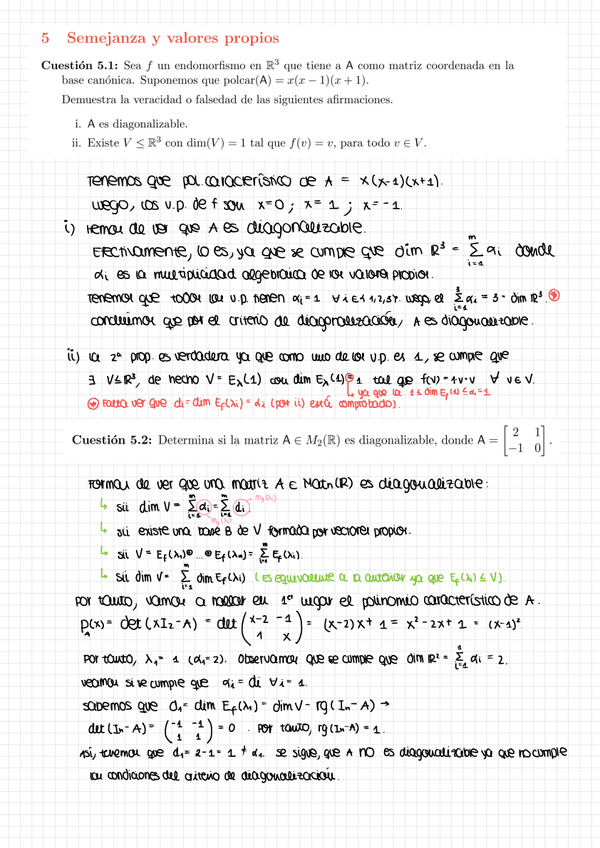 5 Semejanza y valores propios
Cuestión 5.1: Sea f un endomorfismo en ℝ³ que tiene a A como matriz coordenada en la
base canónica. Suponemos que polcar(A) = x(x − 1)(x + 1).
Demuestra la veracidad o falsedad de las siguientes afirmaciones.
i. A es diagonalizable.
ii. Existe V ≤ ℝ³ con dim(V) = 1 tal que f(v) = v, para todo v ∈ V.
Tenemos que pol. característico de A = x(x-1)(x+1).
luego, los v.p. de f son x=0 ; x=1 ; x=-1.
i) Hemos de ver que A es diagonalizable.
Efectivamente, lo es, ya que se cumple que dim ℝ³ = Σ_{i=1}^{m} αi donde
αi es la multiplicidad algebraica de los valores propios.
Tenemos que todos los v.p. tienen αi = 1 ∀ i ∈ {1,2,3}. luego, el Σ_{i=1}^{3} αi = 3 = dim ℝ³. ⊛
concluimos que por el criterio de diagonalización, A es diagonalizable.
ii) la 2ª prop. es verdadera ya que como uno de los v.p. es 1, se cumple que
∃ V≤ℝ³, de hecho V = Eλ(1) con dim Eλ(1) = 1 tal que f(v) = 1·v = v ∀ v ∈ V.
↳ ya que la 1 ≤ dim Ef(1) ≤ α = 1
⊛ Falta ver que di = dim Ef(λi) = αi (por ii) está comprobado).
Cuestión 5.2: Determina si la matriz A ∈ M₂(ℝ) es diagonalizable, donde A = [2 1; −1 0].
Formas de ver que una matriz A ∈ Matn(ℝ) es diagonalizable:
↳ sii dim V = Σ_{i=1}^{m} αi = Σ_{i=1}^{m} di. → mg(λi)
ma(λi)
↳ sii existe una base B de V formada por vectores propios.
↳ sii V = Ef(λ1) ⊕ ... ⊕ Ef(λm) = Σ_{i=1}^{m} Ef(λi).
↳ sii dim V = Σ_{i=1}^{m} dim Ef(λi) (es equivalente a la anterior ya que Ef(λi) ≤ V).
Por tanto, vamos a hallar en 1º lugar el polinomio característico de A.
P_A(x) = det(xI2 - A) = det (x-2 -1; 1 x) = (x-2)x + 1 = x² - 2x + 1 = (x-1)²
Por tanto, λ1 = 1 (α1 = 2). Observamos que se cumple que dim ℝ² = Σ_{i=1}^{1} αi = 2.
veamos si se cumple que αi = di ∀ i = 1.
sabemos que d1 = dim Ef(λ1) = dim V - rg(In - A) →
det(In - A) = (-1 -1; 1 1) = 0 . Por tanto, rg(In-A) = 1.
Así, tenemos que d1 = 2-1 = 1 ≠ α1. se sigue, que A no es diagonalizable ya que no cumple
las condiciones del criterio de diagonalización.